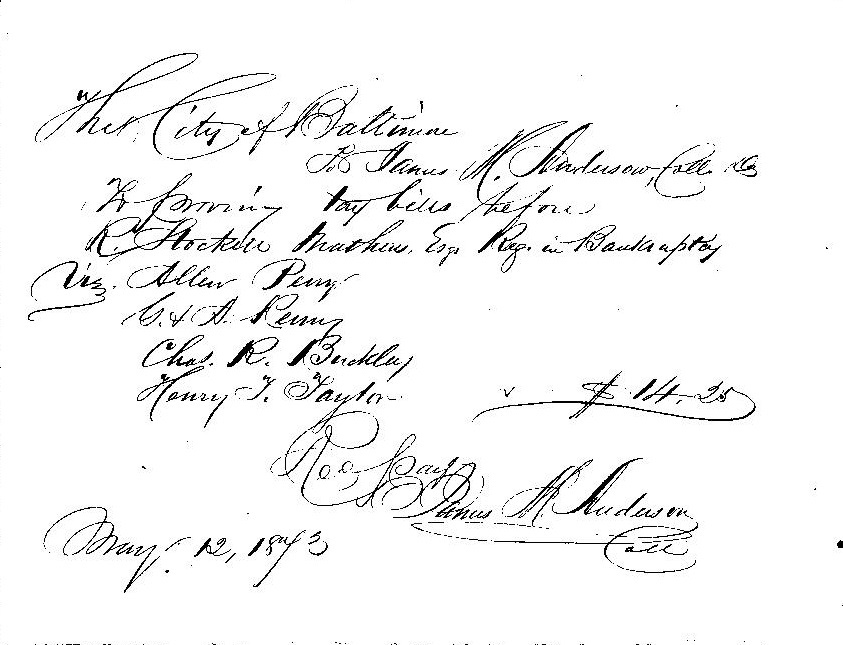 The City of Baltimore
To James M. Anderson, Coll. Dr
To proving tax bills before
R. Stockett Mathews, Esq. Reg. in Bankruptcy
Viz. Allen Perry
C. & A. Perry
Chas. R. Buckley
Henry T. Taylor $14.25
Rec'd pay
James M. Anderson
Coll
May 12, 1873